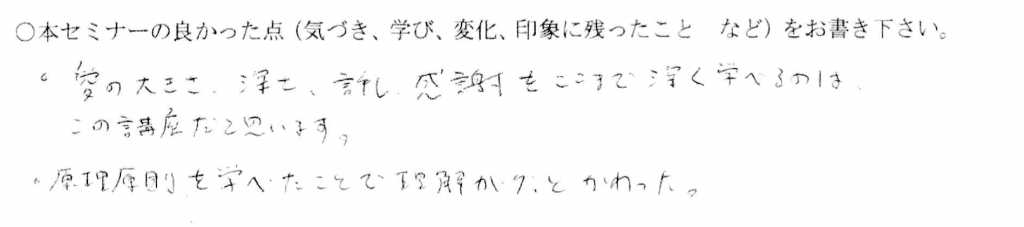 ○本セミナーの良かった点（気づき、学び、変化、印象に残ったこと　など）をお書き下さい。
。愛の大きさ、深さ、許し、感謝をここまで深く学べるのは、
この講座だと思います。
。原理原則を学べたことで理解がグッとかわった。